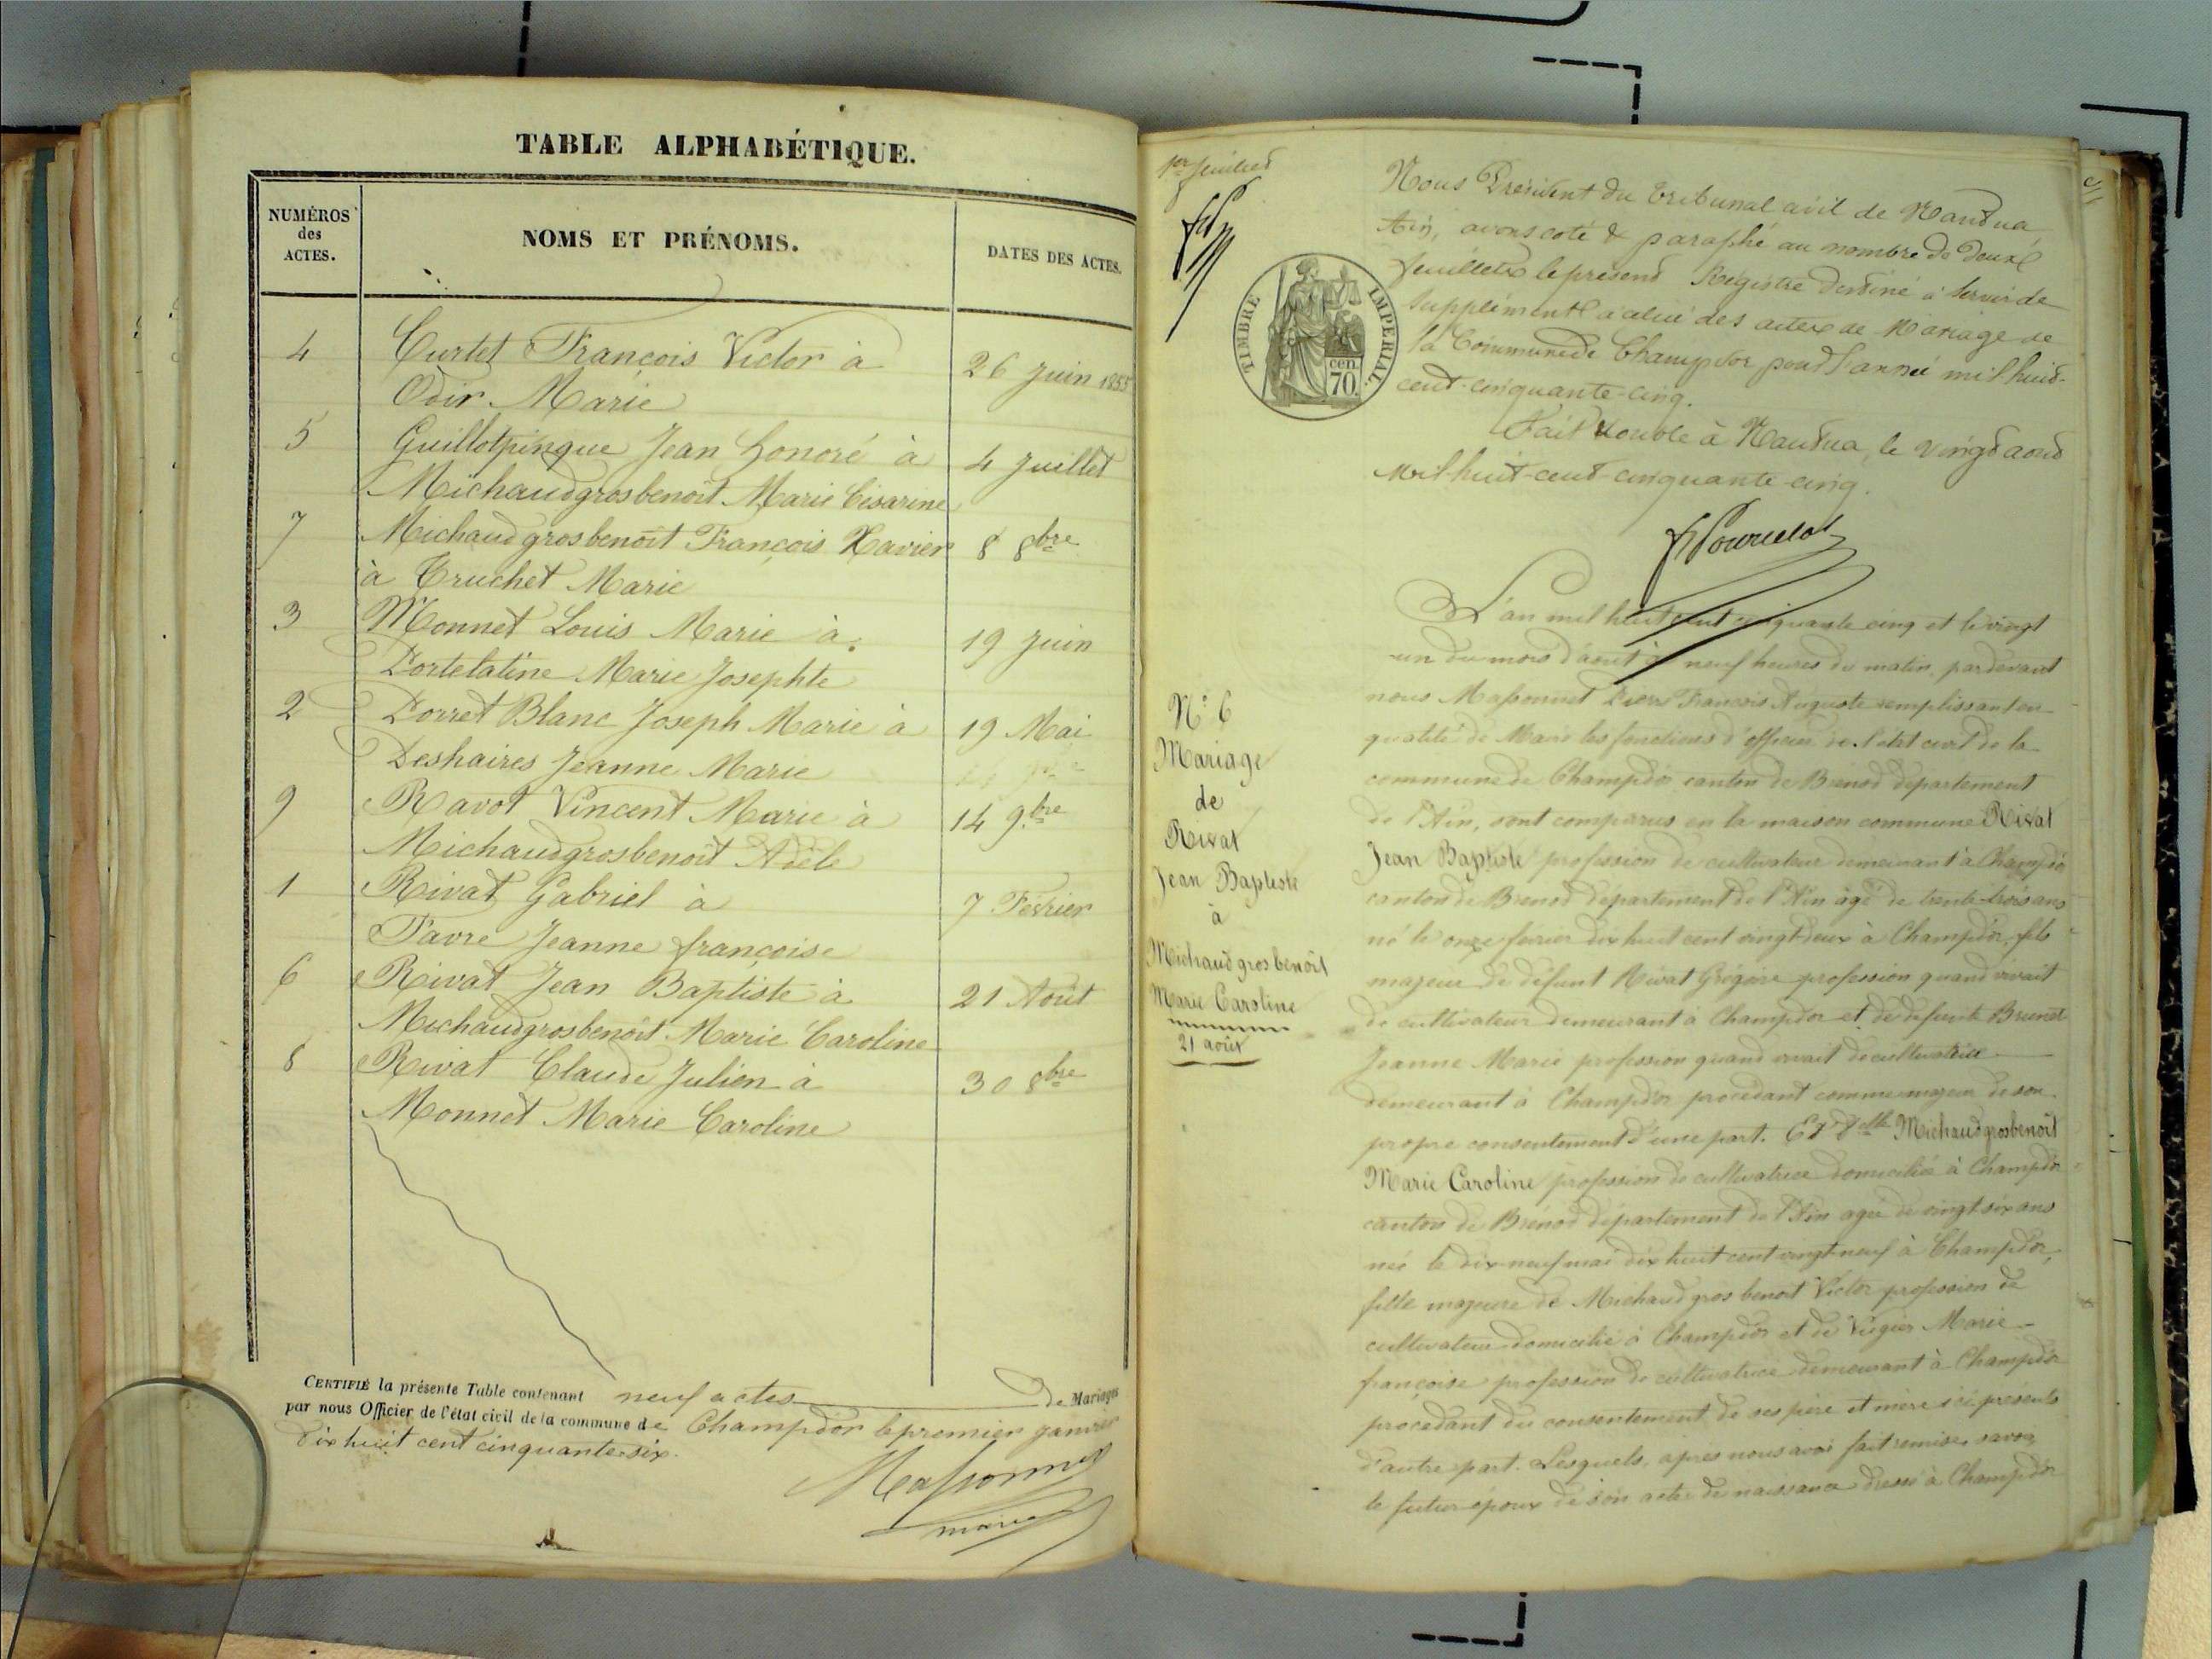 TABLE ALPHABÉTIQUE.
NUMÉROS des ACTES.
NOMS ET PRÉNOMS.
DATES DES ACTES.
4 Curtet François Victor à 26 Juin 1855
Odir Marie
5 Guillotpinque Jean Honoré à 4 Juillet
Michaudgrosbenoît Marie Césarine
7 Michaudgrosbenoît François Xavier 8 8bre
à Truchet Marie
3 Monnet Louis Marie à 19 Juin
Portelatine Marie Josephte
2 Porret Blanc Joseph Marie à 19 Mai
Deshaires Jeanne Marie
9 Ravot Vincent Marie à 14 9bre
Michaudgrosbenoît Adèle
1 Rivat Gabriel à 7 Février
Favre Jeanne françoise
6 Rivat Jean Baptiste à 21 Août
Michaudgrosbenoît Marie Caroline
8 Rivat Claude Julien à 30 8bre
Monnet Marie Caroline
CERTIFIÉ la présente Table contenant neuf actes de Mariages
par nous Officier de l'état civil de la commune de Champdor le premier janvier
dix huit cent cinquante-six.
Massonnet
maire
1er feuillet
Nous Président du tribunal civil de Nantua
Ain, avons coté & paraphé au nombre de deux
feuillets le présent Registre destiné à servir de
Supplément à celui des actes de Mariage de
la Commune de Champdor pour l'année mil huit-
cent-cinquante-cinq.
Fait double à Nantua, le vingt aout
mil-huit-cent-cinquante-cinq.
TIMBRE IMPÉRIAL.
cen. 70.
L'an mil huit cent cinquante cinq et le vingt
un du mois d'août à neuf heures du matin, pardevant
nous Massonnet Pierre François Auguste remplissant en
qualité de Maire les fonctions d'officier de l'état civil de la
commune de Champdor canton de Brenod département
de l'Ain, sont comparus en la maison commune Rivat
Jean Baptiste profession de cultivateur demeurant à Champdor
canton de Brenod département de l'Ain âgé de trente-trois ans
né le onze février dix huit cent vingt-deux à Champdor, fils
majeur de défunt Rivat Grégoire profession quand vivait
de cultivateur demeurant à Champdor et de défunte Brunet
Jeanne Marie profession quand vivait de cultivatrice
demeurant à Champdor procédant comme majeur de son
propre consentement d'une part. Et delle Michaudgrosbenoît
Marie Caroline profession de cultivatrice domiciliée à Champdor
canton de Brénod département de l'Ain agée de vingt-six ans
née le dix-neuf mai dix huit cent vingt-neuf à Champdor,
fille majeure de Michaudgrosbenoît Victor profession de
cultivateur domicilié à Champdor et de Végier Marie
françoise profession de cultivatrice demeurant à Champdor
procédant du consentement de ses père et mère ici présents
d'autre part. Lesquels, après nous avoir fait remise, savoir
le futur époux de son acte de naissance dressé à Champdor
N° 6
Mariage
de
Rivat
Jean Baptiste
à
Michaudgrosbenoît
Marie Caroline
21 août